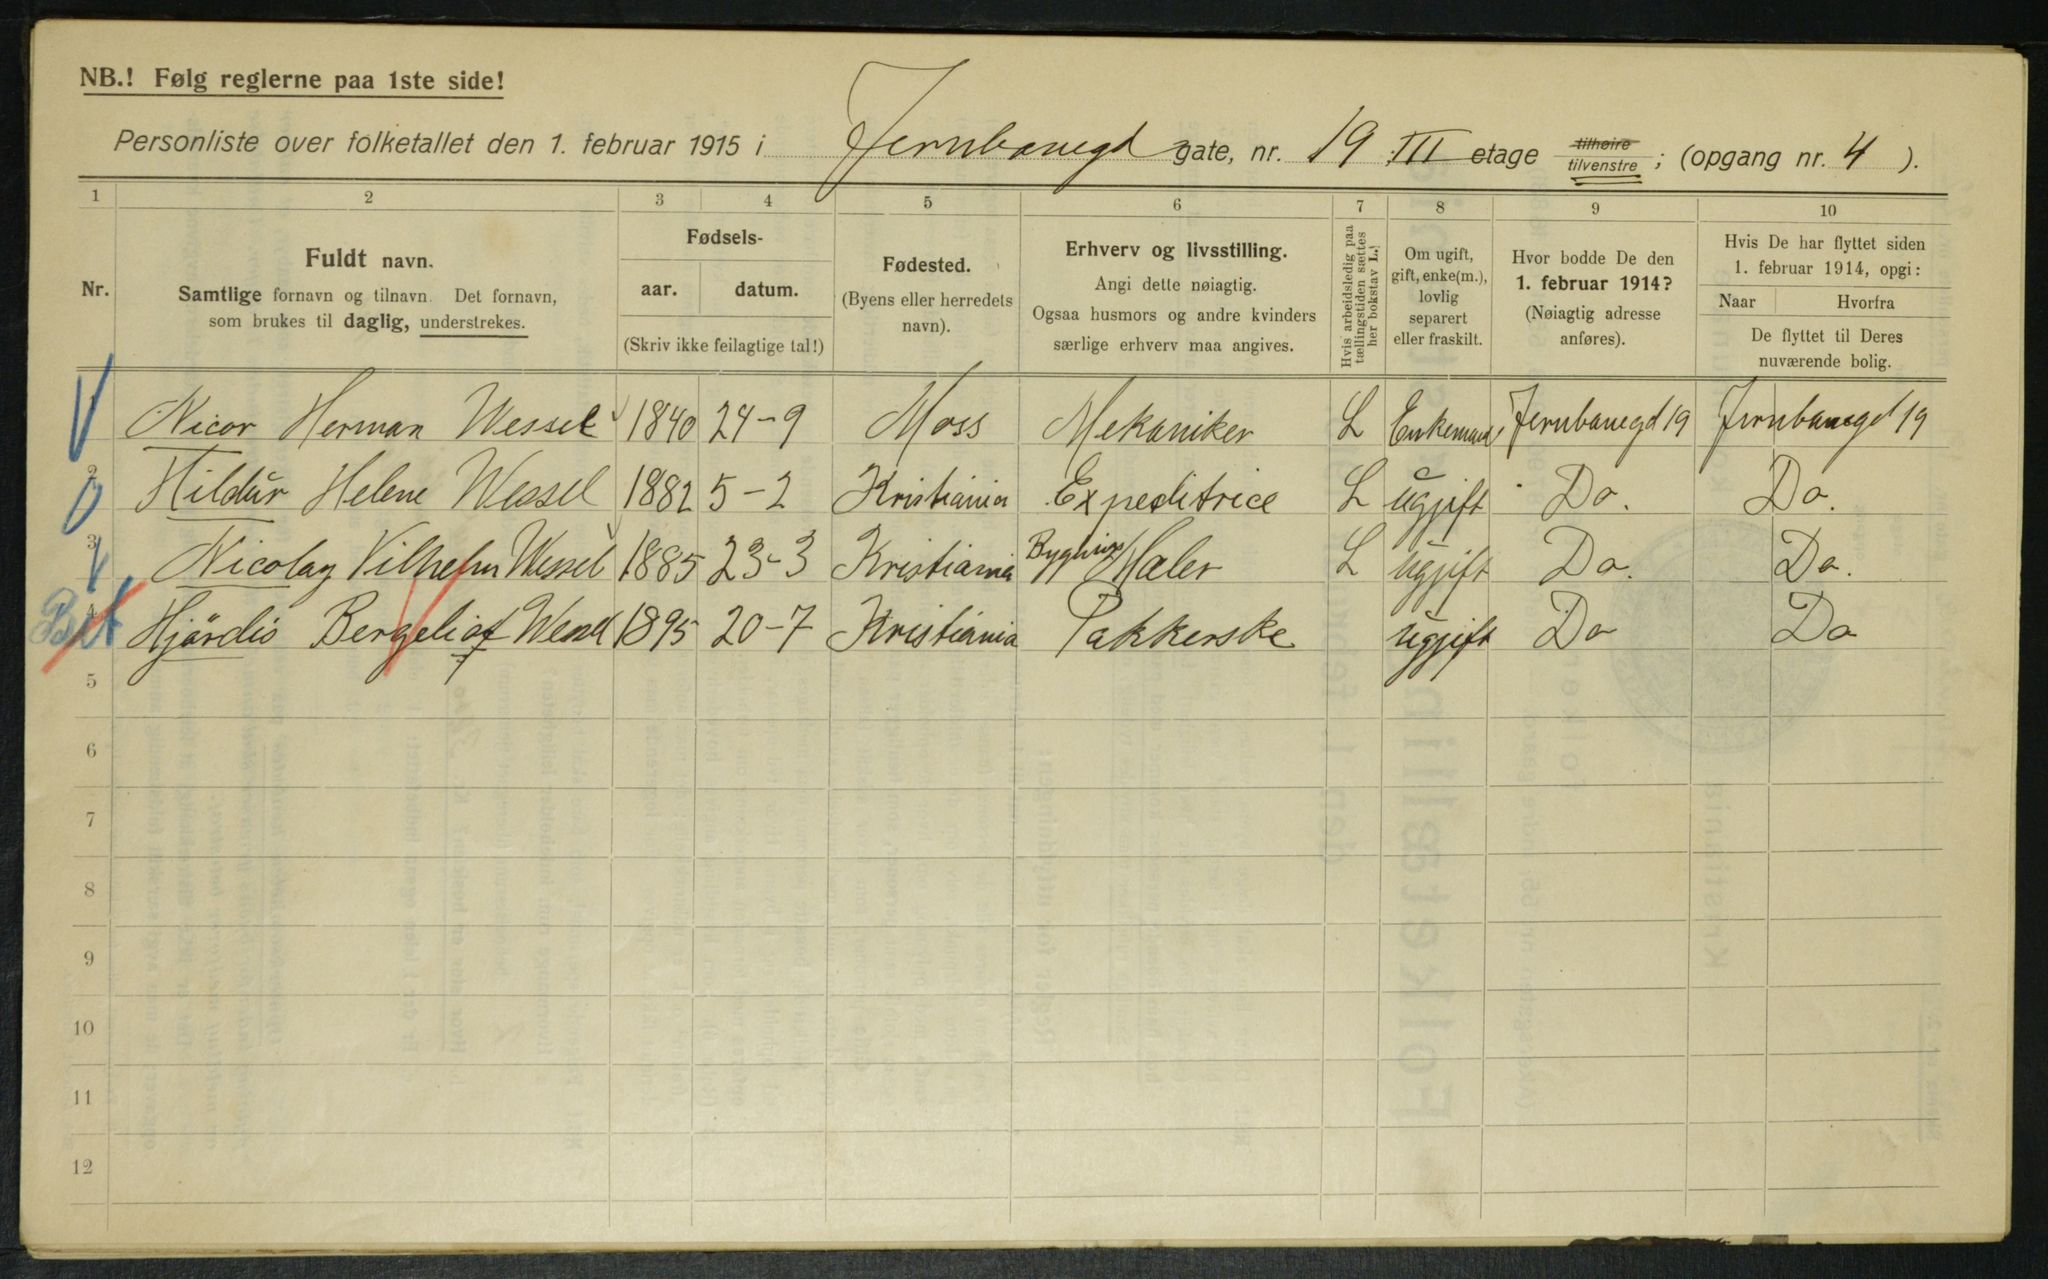 NB.! Følg reglerne paa 1ste side!
Personliste over folketallet den 1. februar 1915 i Jernbanegd gate, nr. 19 III etage tilhøire tilvenstre ; (opgang nr. 4 ).
1 2 3 4 5 6 7 8 9 10
Nr.
Fuldt navn.
Samtlige fornavn og tilnavn. Det fornavn,
som brukes til daglig, understrekes.
Fødsels-
aar. datum.
(Skriv ikke feilagtige tal!)
Fødested.
(Byens eller herredets
navn).
Erhverv og livsstilling.
Angi dette nøiagtig.
Ogsaa husmors og andre kvinders
særlige erhverv maa angives.
Hvis arbeidsledig paa
tællingstiden sættes
her bokstav L.!
Om ugift,
gift, enke(m.),
lovlig
separert
eller fraskilt.
Hvor bodde De den
1. februar 1914?
(Nøiagtig adresse
anføres).
Hvis De har flyttet siden
1. februar 1914, opgi:
Naar Hvorfra
De flyttet til Deres
nuværende bolig.
Nicor Herman Wessel 1840 24-9 Moss Mekaniker L Enkemand Jernbanegd 19 Jernbanegd 19
2 Hildur Helene Wessel 1882 5-2 Kristiania Expeditrice L ugift Do. Do.
3 Nicolay Vilhelm Wessel 1885 23-3 Kristiania Maler L ugift Do. Do.
4 Hjørdis Wessel 1895 20-7 Kristiania Pakkerske ugift Do Do
5
6
7
8
9
10
11
12